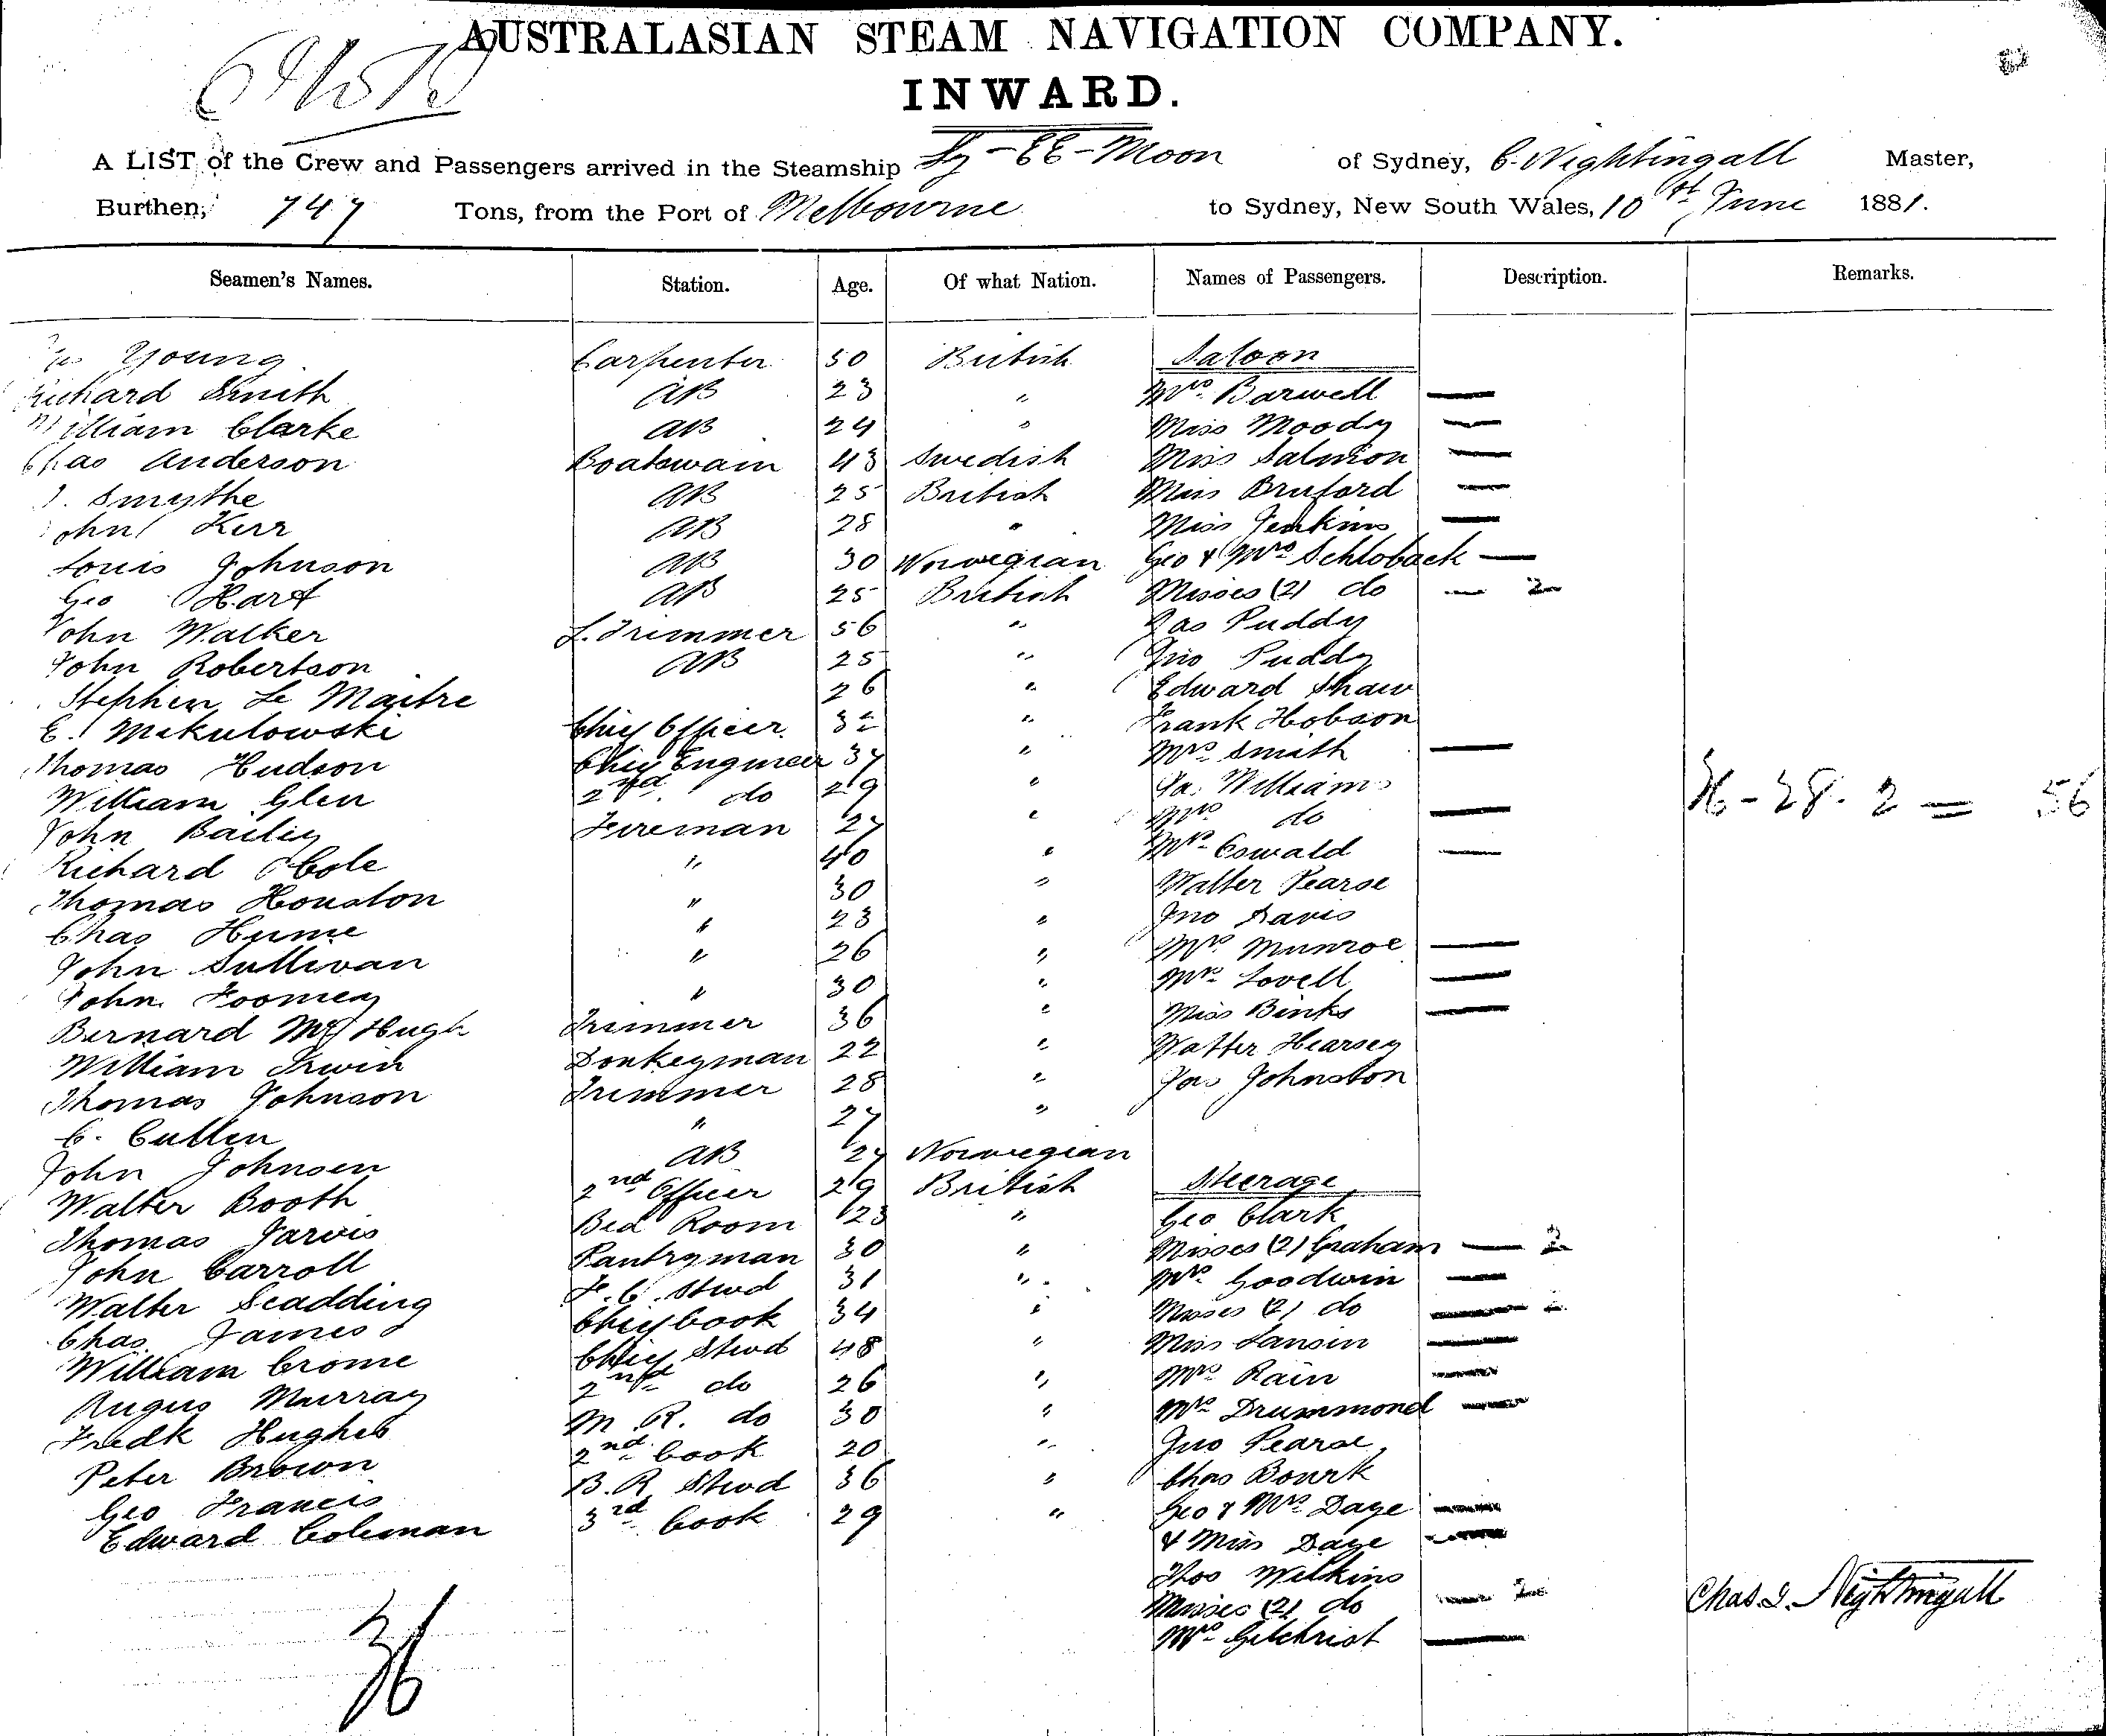 AUSTRALASIAN STEAM NAVIGATION COMPANY.
INWARD.
A LIST of the Crew and Passengers arrived in the Steamship Ly-EE-Moon of Sydney, C. Nightingall Master,
Burthen, 747 Tons, from the Port of Melbourne to Sydney, New South Wales, 10th June 1881.
Seamen's Names. Station. Age. Of what Nation. Names of Passengers. Description. Remarks.
Young Carpenter 50 British Saloon
Richard Smith AB 23 " Mrs. Barwell —
William Clarke AB 24 " Miss Moody —
Chas Anderson Boatswain 43 Swedish Miss Salmon —
Smythe AB 25 British Miss Bruford —
John Kerr AB 28 " Miss Jenkins —
Louis Johnson AB 30 Norwegian Geo & Mrs Schloback —
Geo Hart AB 25 British Misses (2) do — 2
John Walker L. Trimmer 56 " Jas Puddy
John Robertson AB 25 " Jno Puddy
Stephen Le Maitre 26 " Edward Shaw
E. Mikulowski Chief Officer 32 " Frank Hobson
Thomas Hudson Chief Engineer 37 " Mrs Smith —
William Glen 2nd. do 29 " Ja. Williams
John Bailey Fireman 27 " Mrs do —
36 - 28. 2 = 56
Richard Cole " 40 " Mrs Oswald —
Thomas Houston " 30 " Walter Pearse
Chas Hume " 23 " Jno Davis
John Sullivan " 26 " Mrs. Munroe —
John Toomey " 30 " Mrs Lovell —
Bernard McHugh Trimmer 36 " Miss Binks —
William Irwin Donkeyman 22 " Walter Hearsey
Thomas Johnson Trimmer 28 " Jas Johnston
C. Cullen " 27 "
John Johnsen AB 27 Norwegian
Walter Booth 2nd Officer 29 British Steerage
Thomas Jarvis Bed Room 23 " Geo Clark
John Carroll Pantryman 30 " Misses (2) Graham — 2
Walter Scadding F. C. Stwd 31 " Mrs. Goodwin —
Chas James Chief Cook 34 " Misses (2) do — 2
William Crome Chief Stwd 48 " Miss Lansin —
Angus Murray 2nd do 26 " Mrs Rain —
Fredk Hughes M. R. do 30 " Mrs Drummond —
Peter Brown 2nd. Cook 20 " Jno Pearse
Geo Francis B. R. Stwd 36 " Chas Bourk
Edward Coleman 3rd Cook 29 " Geo & Mrs Daye —
& Miss Daye —
Thos Wilkins
Misses (2) do — 2
Mrs Gilchrist —
Chas. G. Nightingall
36